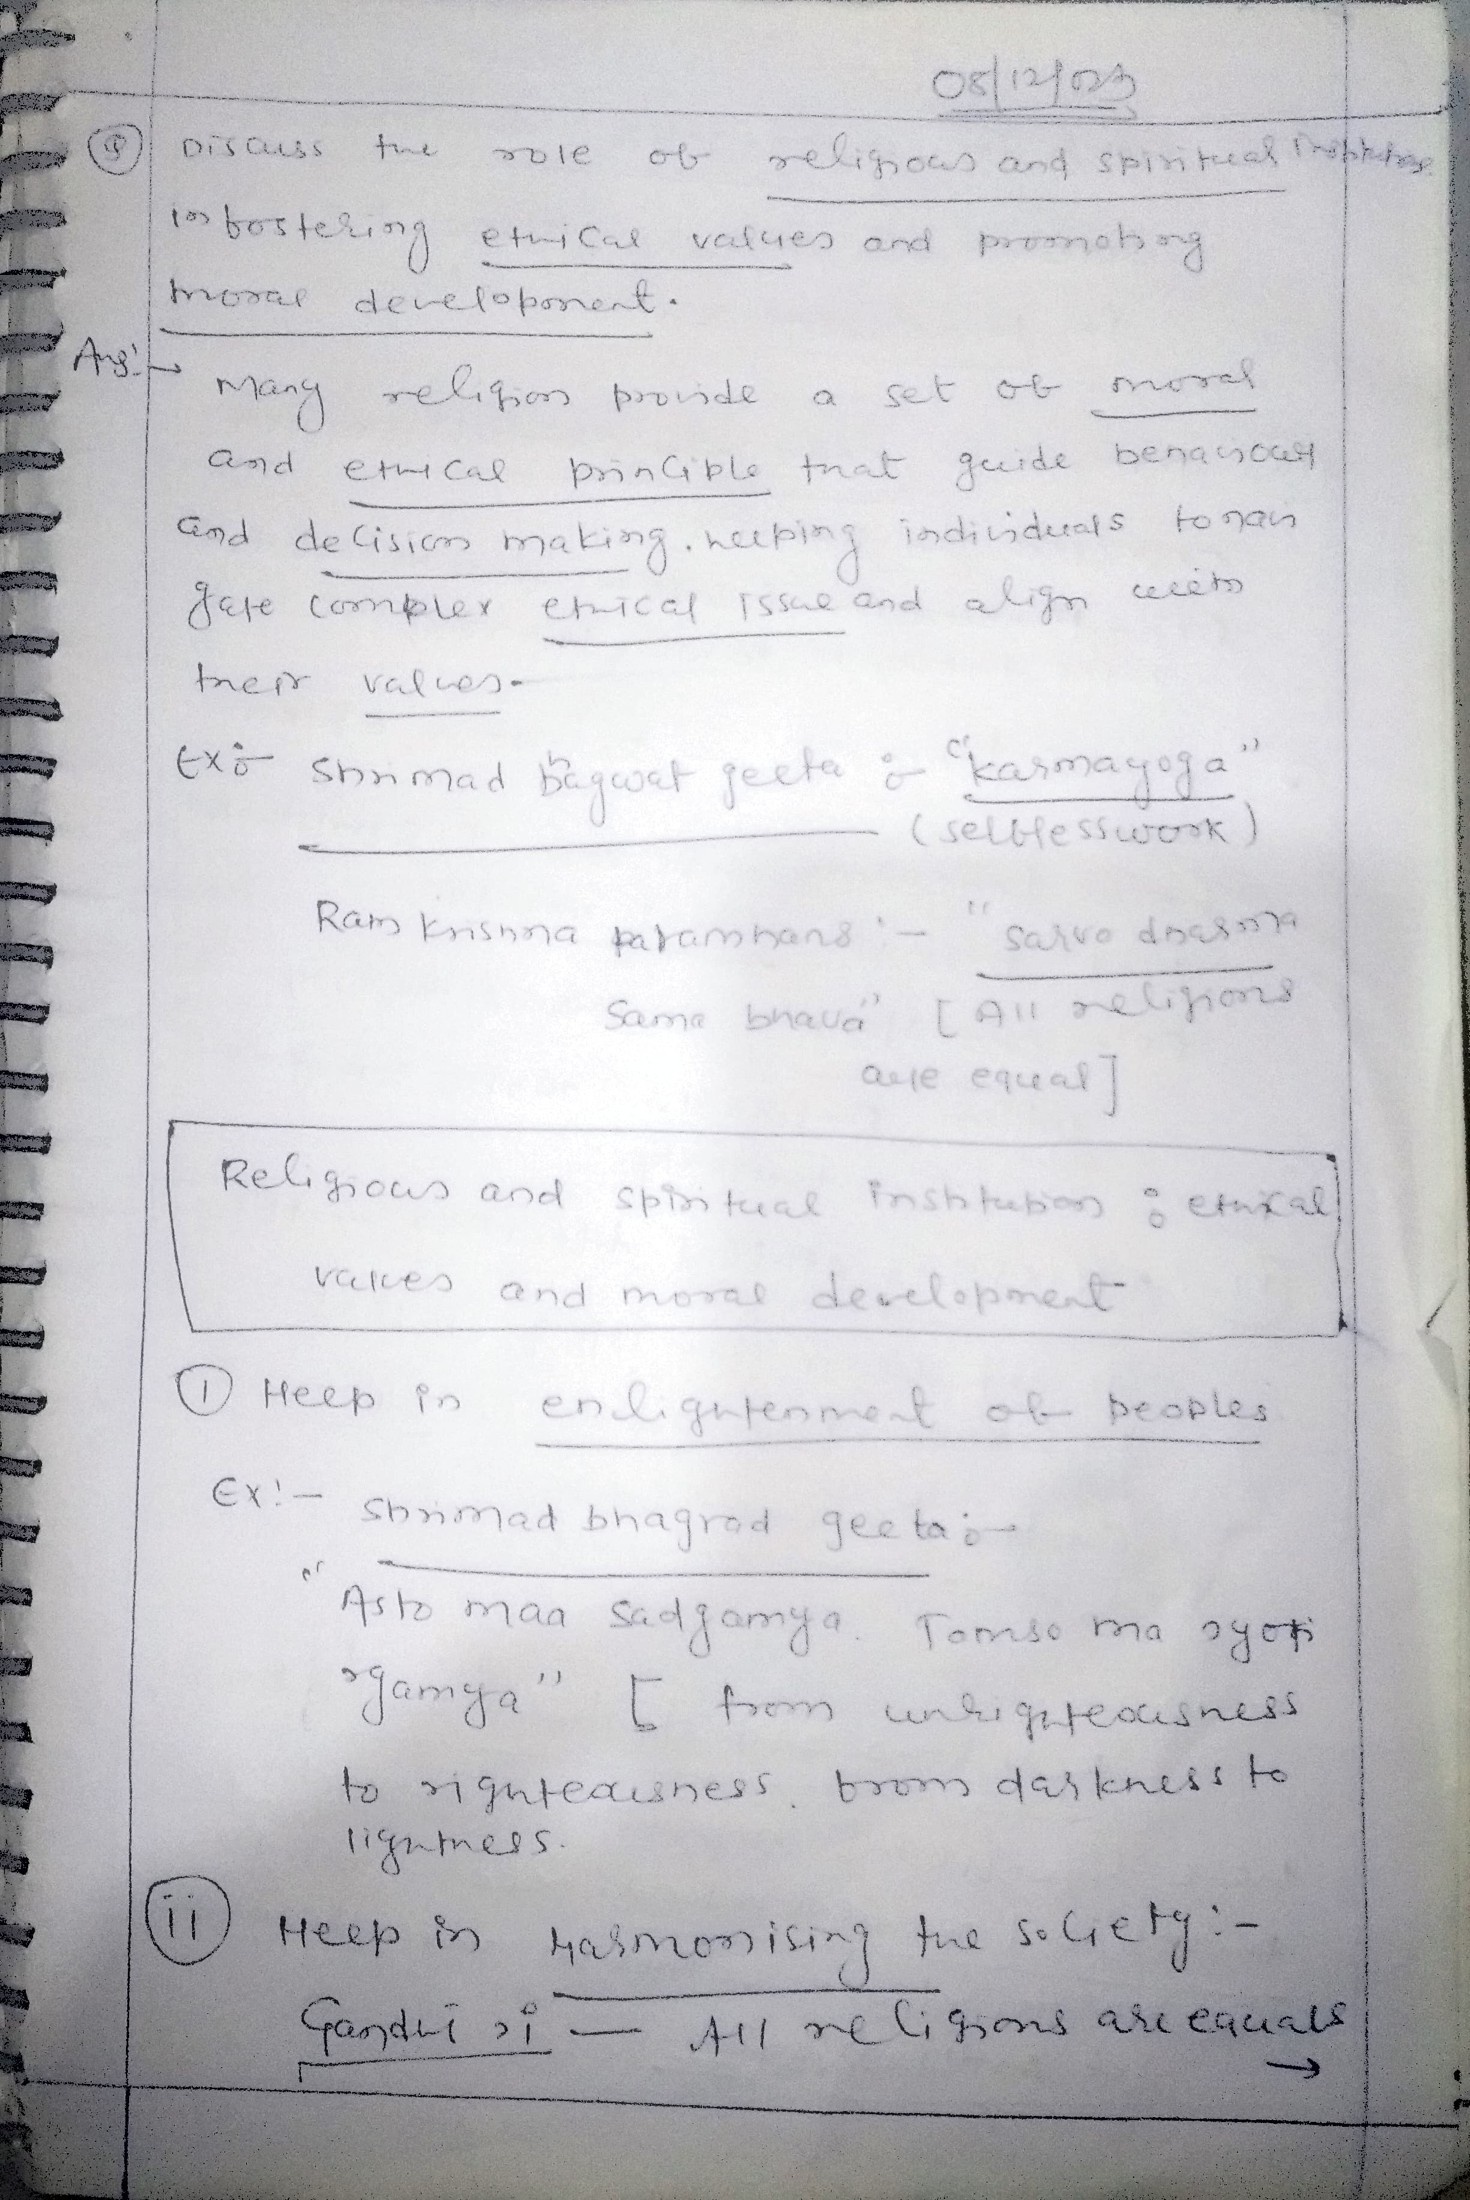 08/12/023
Q Discuss the role of religious and spiritual
in fostering ethical values and promoting
moral development.
Ans:→
Many religion provide a set of moral
and ethical principle that guide behaviour
and decision making. helping individuals to navi
gate complex ethical issue and align with
their values.
Ex:- Shrimad bagwat geeta :- "karmayoga"
(selflesswork)
Ram krishna paramhans :- "sarva dharma
Sama bhava" [All religions
are equal]
Religious and spiritual institution : ethical
values and moral development
① Help in enlightenment of peoples
Ex:- Shrimad bhagvad geeta :-
"Asto maa sadgamya. Tomso ma jyoti
rgamya" [ from unrighteousness
to righteousness. from darkness to
lightness.
(ii) Help in Harmonising the society:-
Gandhi ji — All religions are equals
→